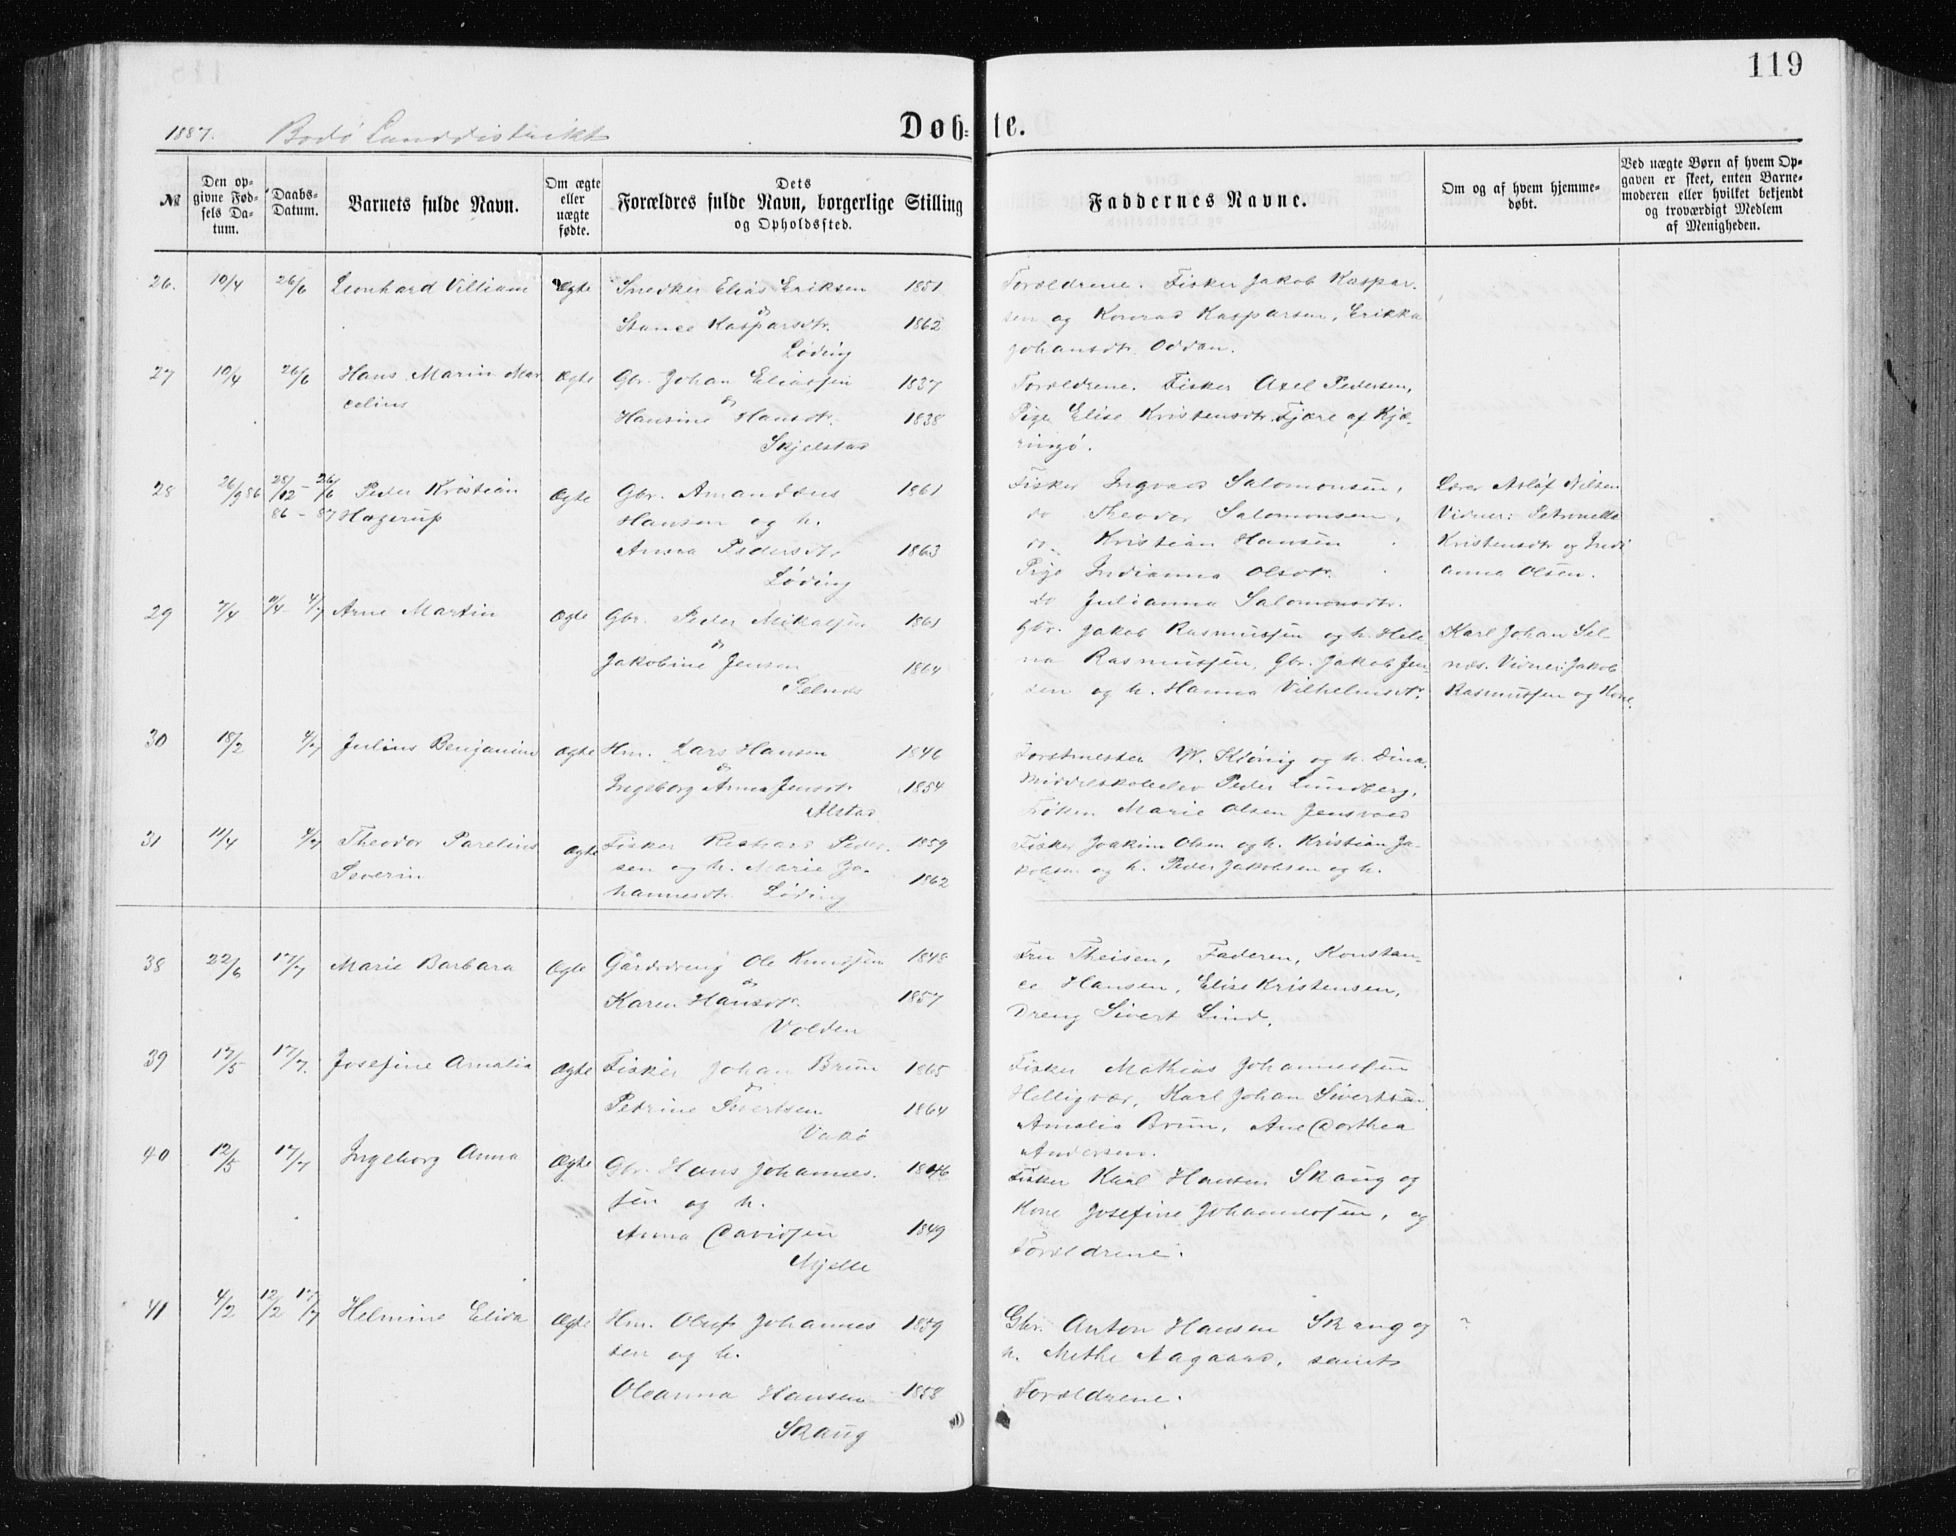 119
1887. Bodø Landdistrikt
Døb-te.
№
Den opgivne Fødsels Datum.
Daabs-Datum.
Barnets fulde Navn.
Om ægte eller uægte fødte.
Dets Forældres fulde Navn, borgerlige Stilling og Opholdssted.
Faddernes Navne.
Om og af hvem hjemmedøbt.
Ved uægte Børn af hvem Opgaven er skeet, enten Barnemoderen eller hvilket bekjendt og troværdigt Medlem af Menigheden.
26. 10/4 26/6 Leonhard Villiam Ægte Snedker Elias Eriksen 1851
og
Stance Kasparsdtr. 1862
Løding
Forældrene. Fisker Jakob Kaspar-
sen og Konrad Kasparsen, Erikka
Johansdtr. Oddan.
27 10/4 26/6 Hans Marin Mar
celius
Ægte Gbr. Johan Eliassen 1837
og
Hansine Hansdtr. 1838
Skjelstad
Forældrene. Fisker Axel Pedersen,
Pige Elise Kristensdtr. Fjære af Kjæ-
ringø.
28 26/9 86 28/12 - 26/6
86 - 87
Peder Kristian
Hagerup
Ægte Gbr. Amandæus 1861
Hansen og h.
Anna Pedersdtr 1863
Løding
Fisker Ingvard Salomonsen,
do Theodor Salomonsen,
do Kristian Hansen
Pige Indianna Olsdtr.
do Julianna Salomonsdtr.
Lærer Asløf Nilsen
Vidner: Petronella
Kristensdtr og Indi
anna Olsen.
29 7/4 4/7 Arne Martin Ægte Gbr. Peder Mikalsen 1861
og
Jakobine Jensen 1864
Selnæs
Gbr. Jakob Rasmussen og h. Hele
na Rasmussen, Gbr. Jakob Jen-
sen og h. Hanna Vilhelmsdtr.
Karl Johan Sel-
næs. Vidner: Jakob
Rasmussen og Kone.
30 18/2 4/7 Julius Benjamin Ægte Hm. Lars Hansen 1846
og
Ingeborg Anna Jensdtr 1854
Alstad
Forstmester W. Klønig og h. Dina.
Middelskoleelev Peder Lundberg,
Frøken Marie Olsen Jensvold
31 11/4 4/7 Theodor Parelius
Severin
Ægte Fisker Richard Peder- 1859
sen og h. Marie Jo- 1862
hannesdtr. Løding
Fisker Joakim Olsen og h. Kristian Ja-
kobsen og h. Peder Jakobsen og h.
38 22/6 17/7 Marie Barbara Ægte Gårdsdreng Ole Knudsen 1848
og
Karen Hansdtr. 1857
Volden
Fru Theisen, Faderen, Konstan-
ce Hansen, Elise Kristensen,
Dreng Sivert Lind.
39 17/5 17/7. Josefine Amalia Ægte Fisker Johan Brun 1865
og
Petrine Sivertsen 1864
Vakø
Fisker Mathias Johannessen
Helligvær, Karl Johan Sivertsen
Amalia Brun, Ane Dorthea
Andersen.
40 12/5 17/7 Ingeborg Anna Ægte Gbr. Hans Johannes- 1846
sen og h.
Anna Davidsen 1849
Mjelle
Fisker Karl Hansen Skaug og
Kone Josefine Johannessen, og
Forældrene.
41 4/2 12/2 17/7 Helmine Elida Ægte Hm. Oluf Johannes 1859
sen og h.
Oleanna Hansen 1858
Skaug
Gbr. Anton Hansen Skaug og
h. Methe Aagaard, samt
Forældrene.